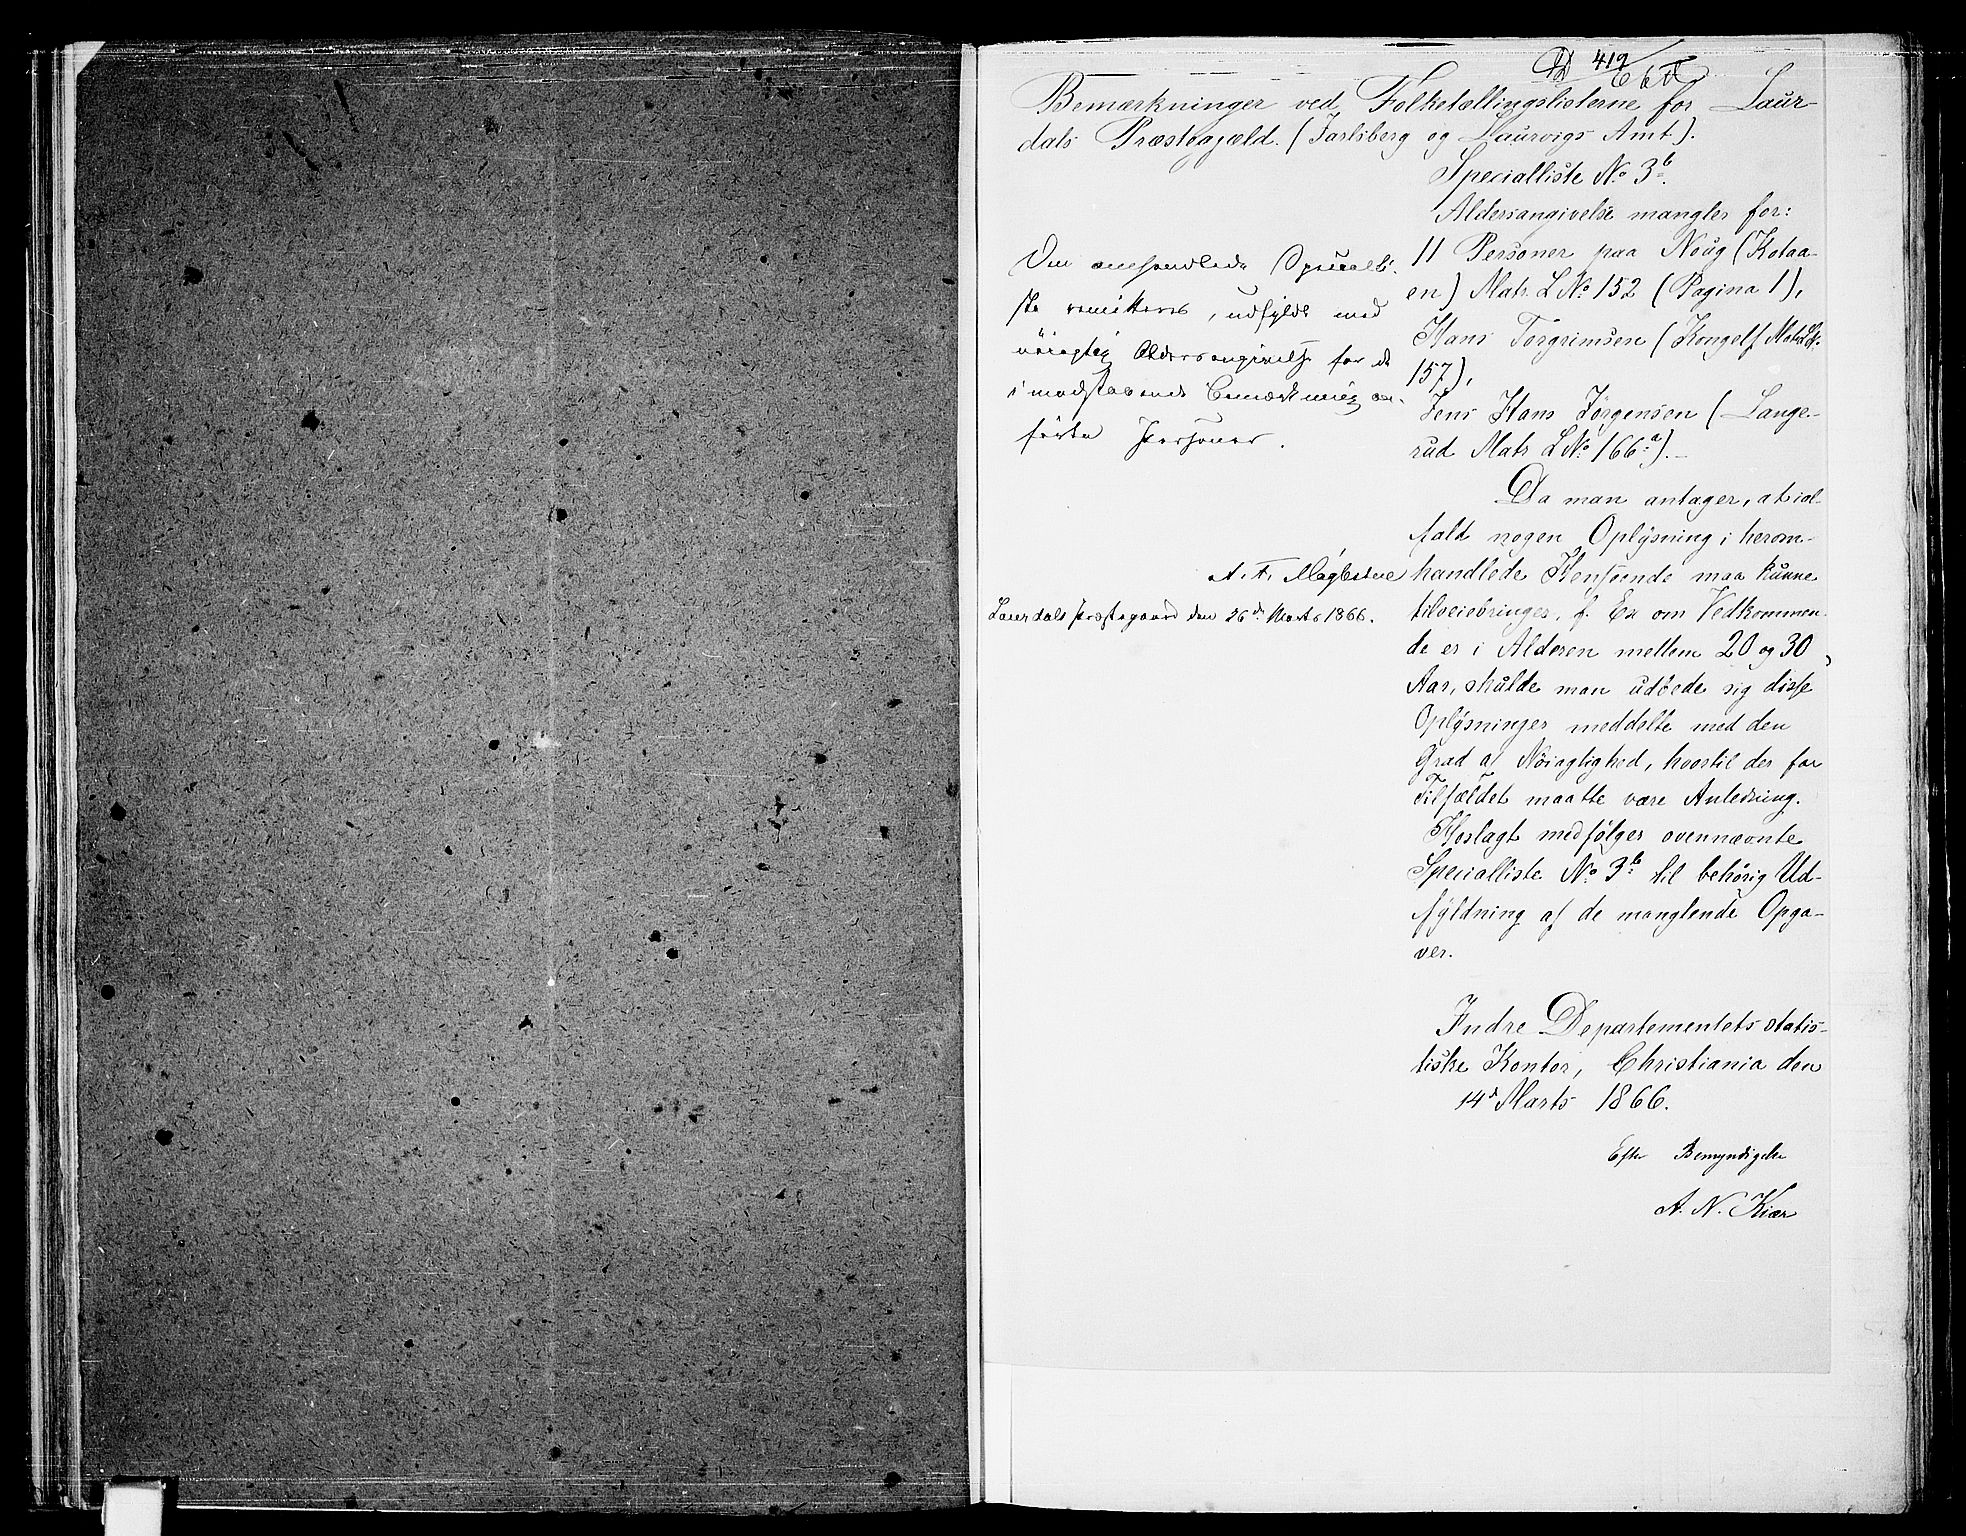 419
Bemærkninger ved Folketællingslisterne for Laur-
dals Præstegjæld. (Jarlsberg og Laurvigs Amt).
Specialliste No 3b.
Aldersangivelse mangler for:
11 Personer paa Noug (Kolaa-
en) Matr. L No 152 (Pagina 1),
Hans Torgrimsen (Kongelf Matr. L No
157),
Jens Hans Jørgensen (Lange-
rud Matr L No 166a).-
Da man antager, at ial-
fald nogen Oplysning i herom-
handlede Henseende maa kunne
tilveiebringes, f. Ex om Vedkommen-
de er i Alderen mellem 20 og 30
Aar, skulde man udbede sig disse
Oplysninger meddelte med den
Grad af Nöiagtighed, hvortil der for
Tilfældet maatte være Anledning.
Hoslagt medfølger ovennævnte
Specialliste No 3b til behørig Ud-
fyldning af de manglende Opga-
ver.
Indre Departementets statis-
tiske Kontor, Christiania den
14d Marts 1866.
Efter Bemyndigelse
A. N. Kiær
Den omhandlede Specialli-
ste remitteres, udfyldt med
nöiagtig Aldersangivelse for de
i modstaaende Bemærkning an-
førte Personer.
Laurdals Præstegaard den 26de Marts 1866.